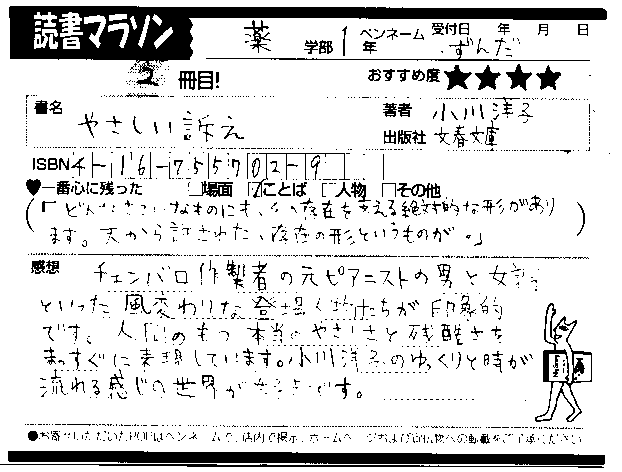 読書マラソン
薬 学部 1 年 ペンネーム ずんだ 受付日 年 月 日
2 冊目! おすすめ度 ★★★★
書名 やさしい訴え
著者 小川洋子
出版社 文春文庫
ISBN 4-16-755702-9
♥一番心に残った □場面 ☑ことば □人物 □その他
(「どんなささいなものにも、その存在を支える絶対的な形があり
ます。天から許された、存在の形というものが。」)
感想 チェンバロ作製者の元ピアニストの男と女
といった風変わりな登場人物たちが印象的
です。人間のもつ本当のやさしさと残酷さを
まっすぐに表現しています。小川洋子のゆっくりと時が
流れる感じの世界が です。
●お寄せいただいたPOPはペンネームで、店内で掲示、ホームページおよび印刷物への転載をご了承ください